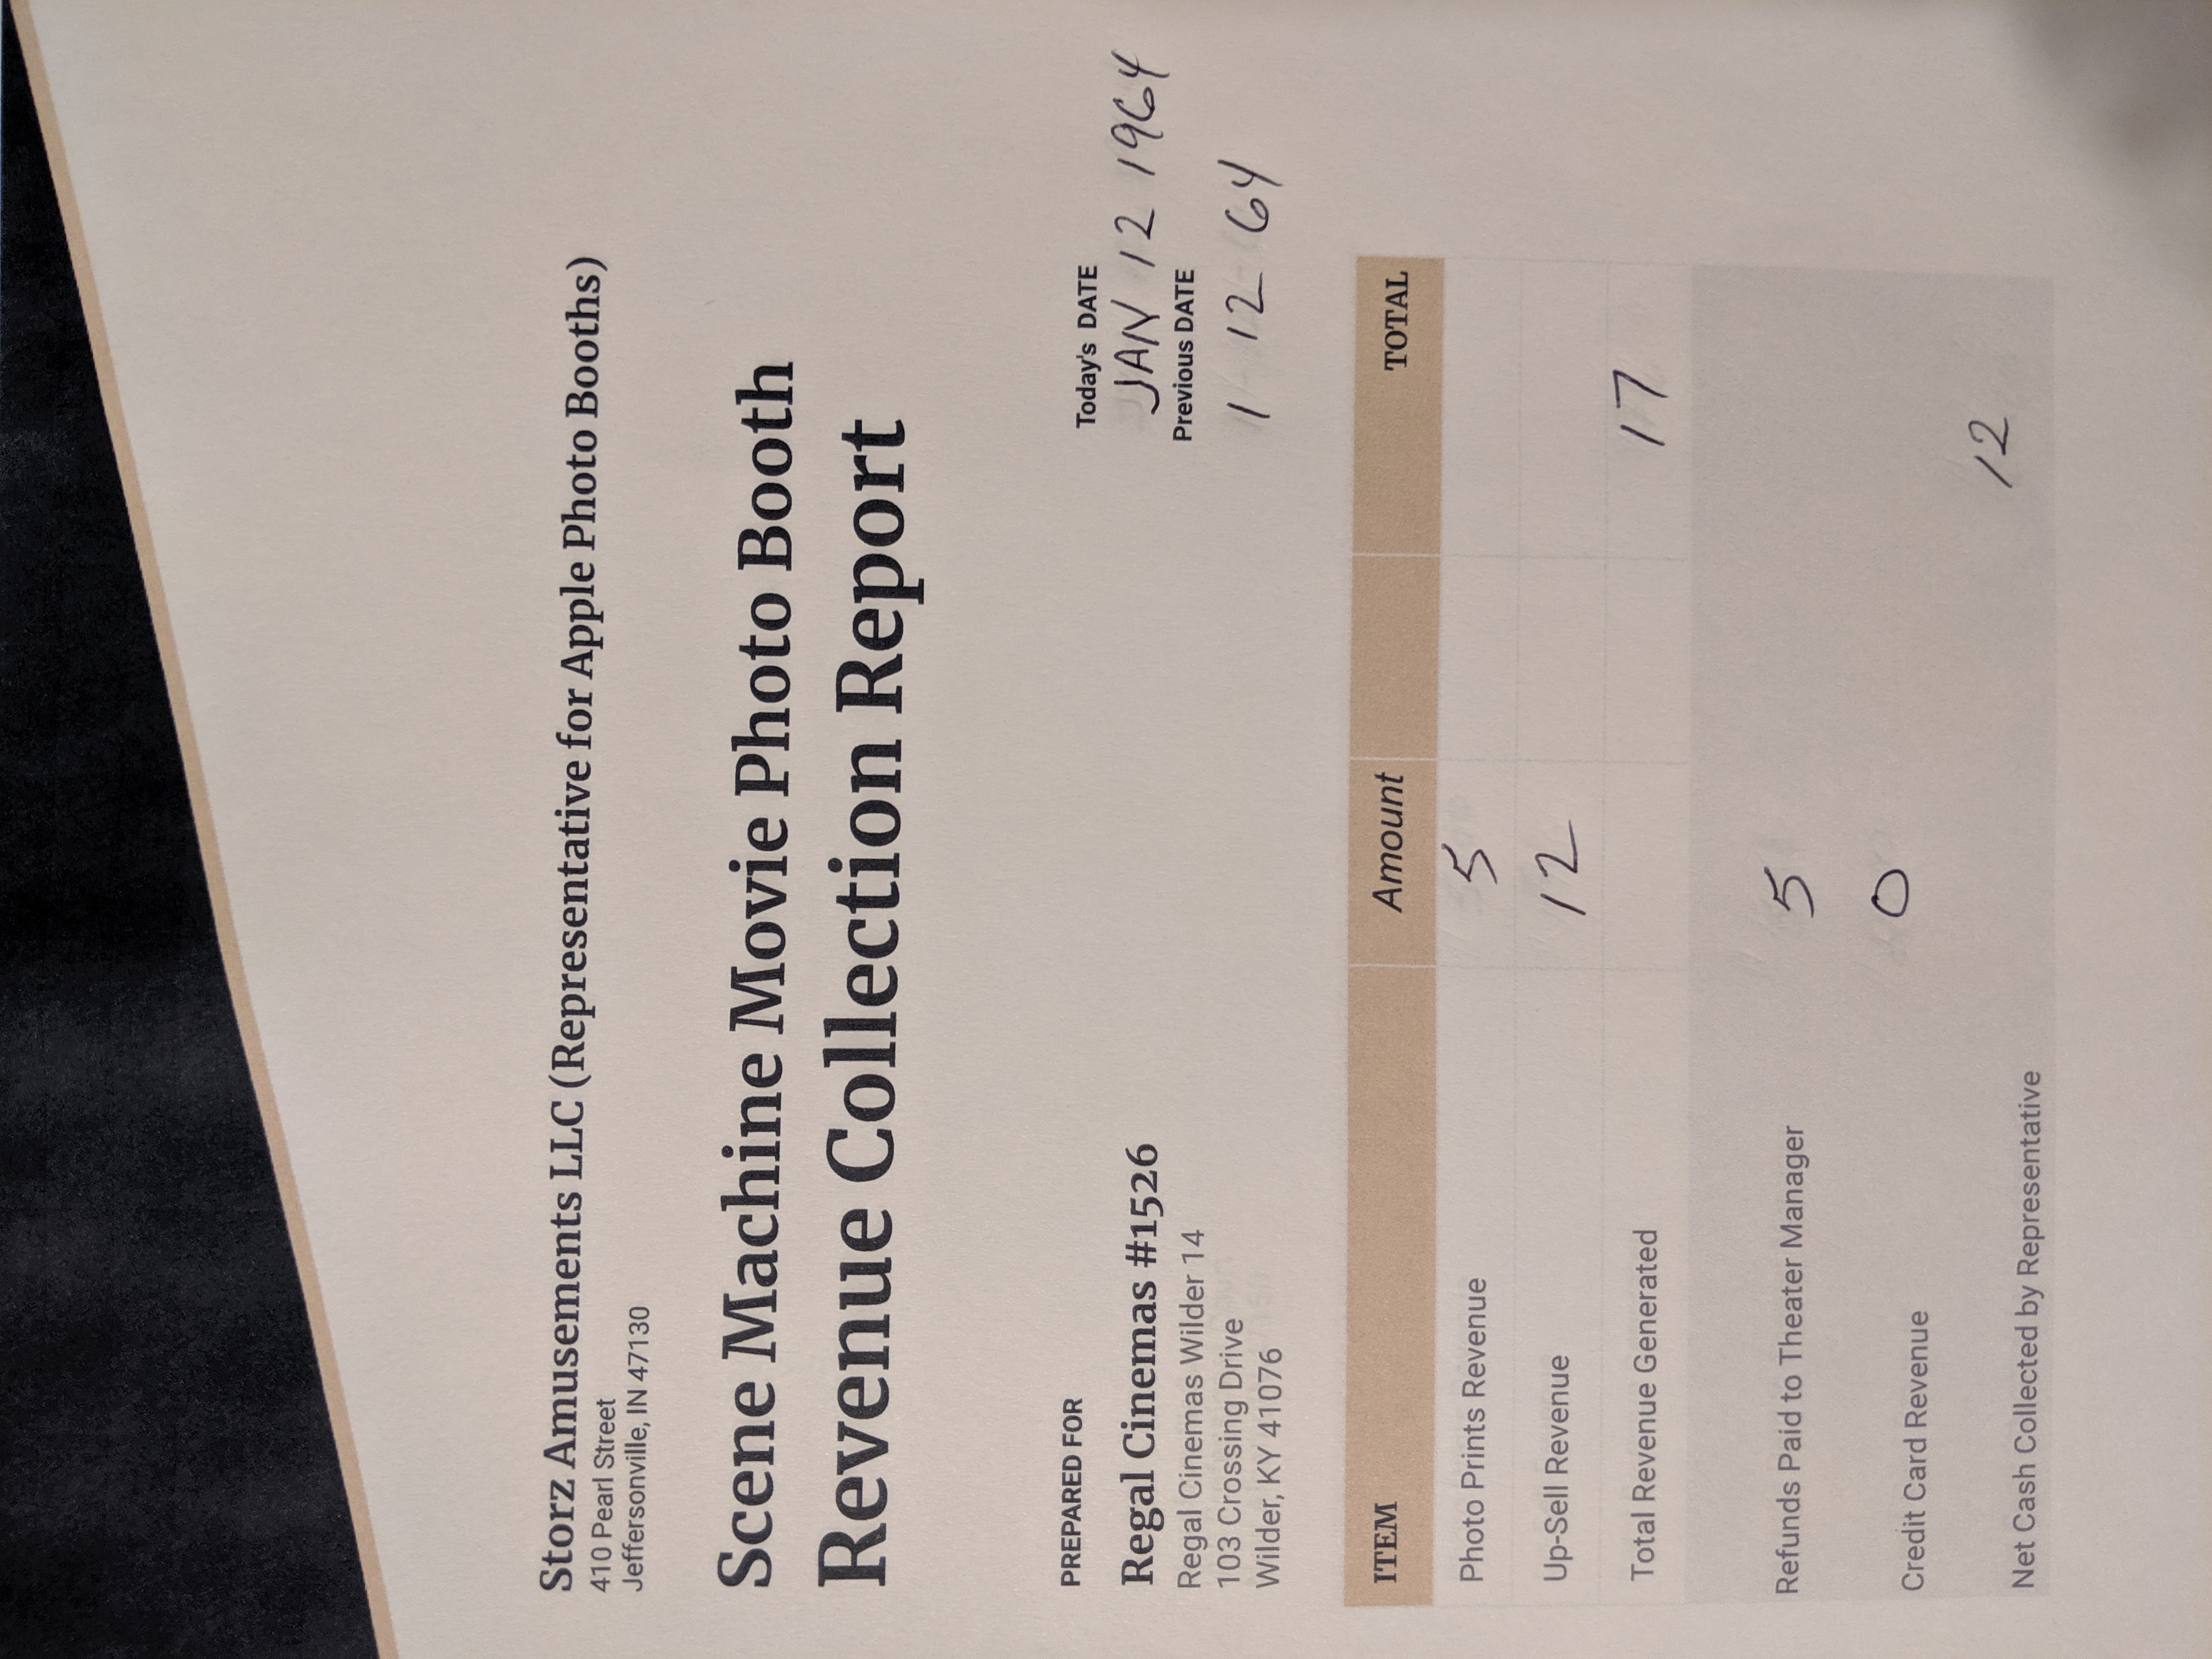 Storz Amusements LLC (Representative for Apple Photo Booths)
410 Pearl Street
Jeffersonville, IN 47130
Scene Machine Movie Photo Booth
Revenue Collection Report
PREPARED FOR
Regal Cinemas #1526
Regal Cinemas Wilder 14
103 Crossing Drive
Wilder, KY 41076
Today's DATE
JAN 12 1964
Previous DATE
1 12 64
ITEM Amount TOTAL
Photo Prints Revenue 5
Up-Sell Revenue 12
Total Revenue Generated 17
Refunds Paid to Theater Manager 5
Credit Card Revenue 0
Net Cash Collected by Representative 12